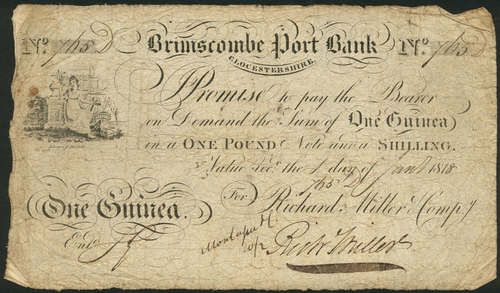 No. 765 D Brimscombe Port Bank No. 765 D
GLOCESTERSHIRE.
I Promise to pay the Bearer
on Demand the Sum of One Guinea
in a ONE POUND Note and a SHILLING.
Value Recd. the 1 day of Jany. 1818
765 D
For Richard Miller & Compy
One Guinea.
Entd
Richd Miller